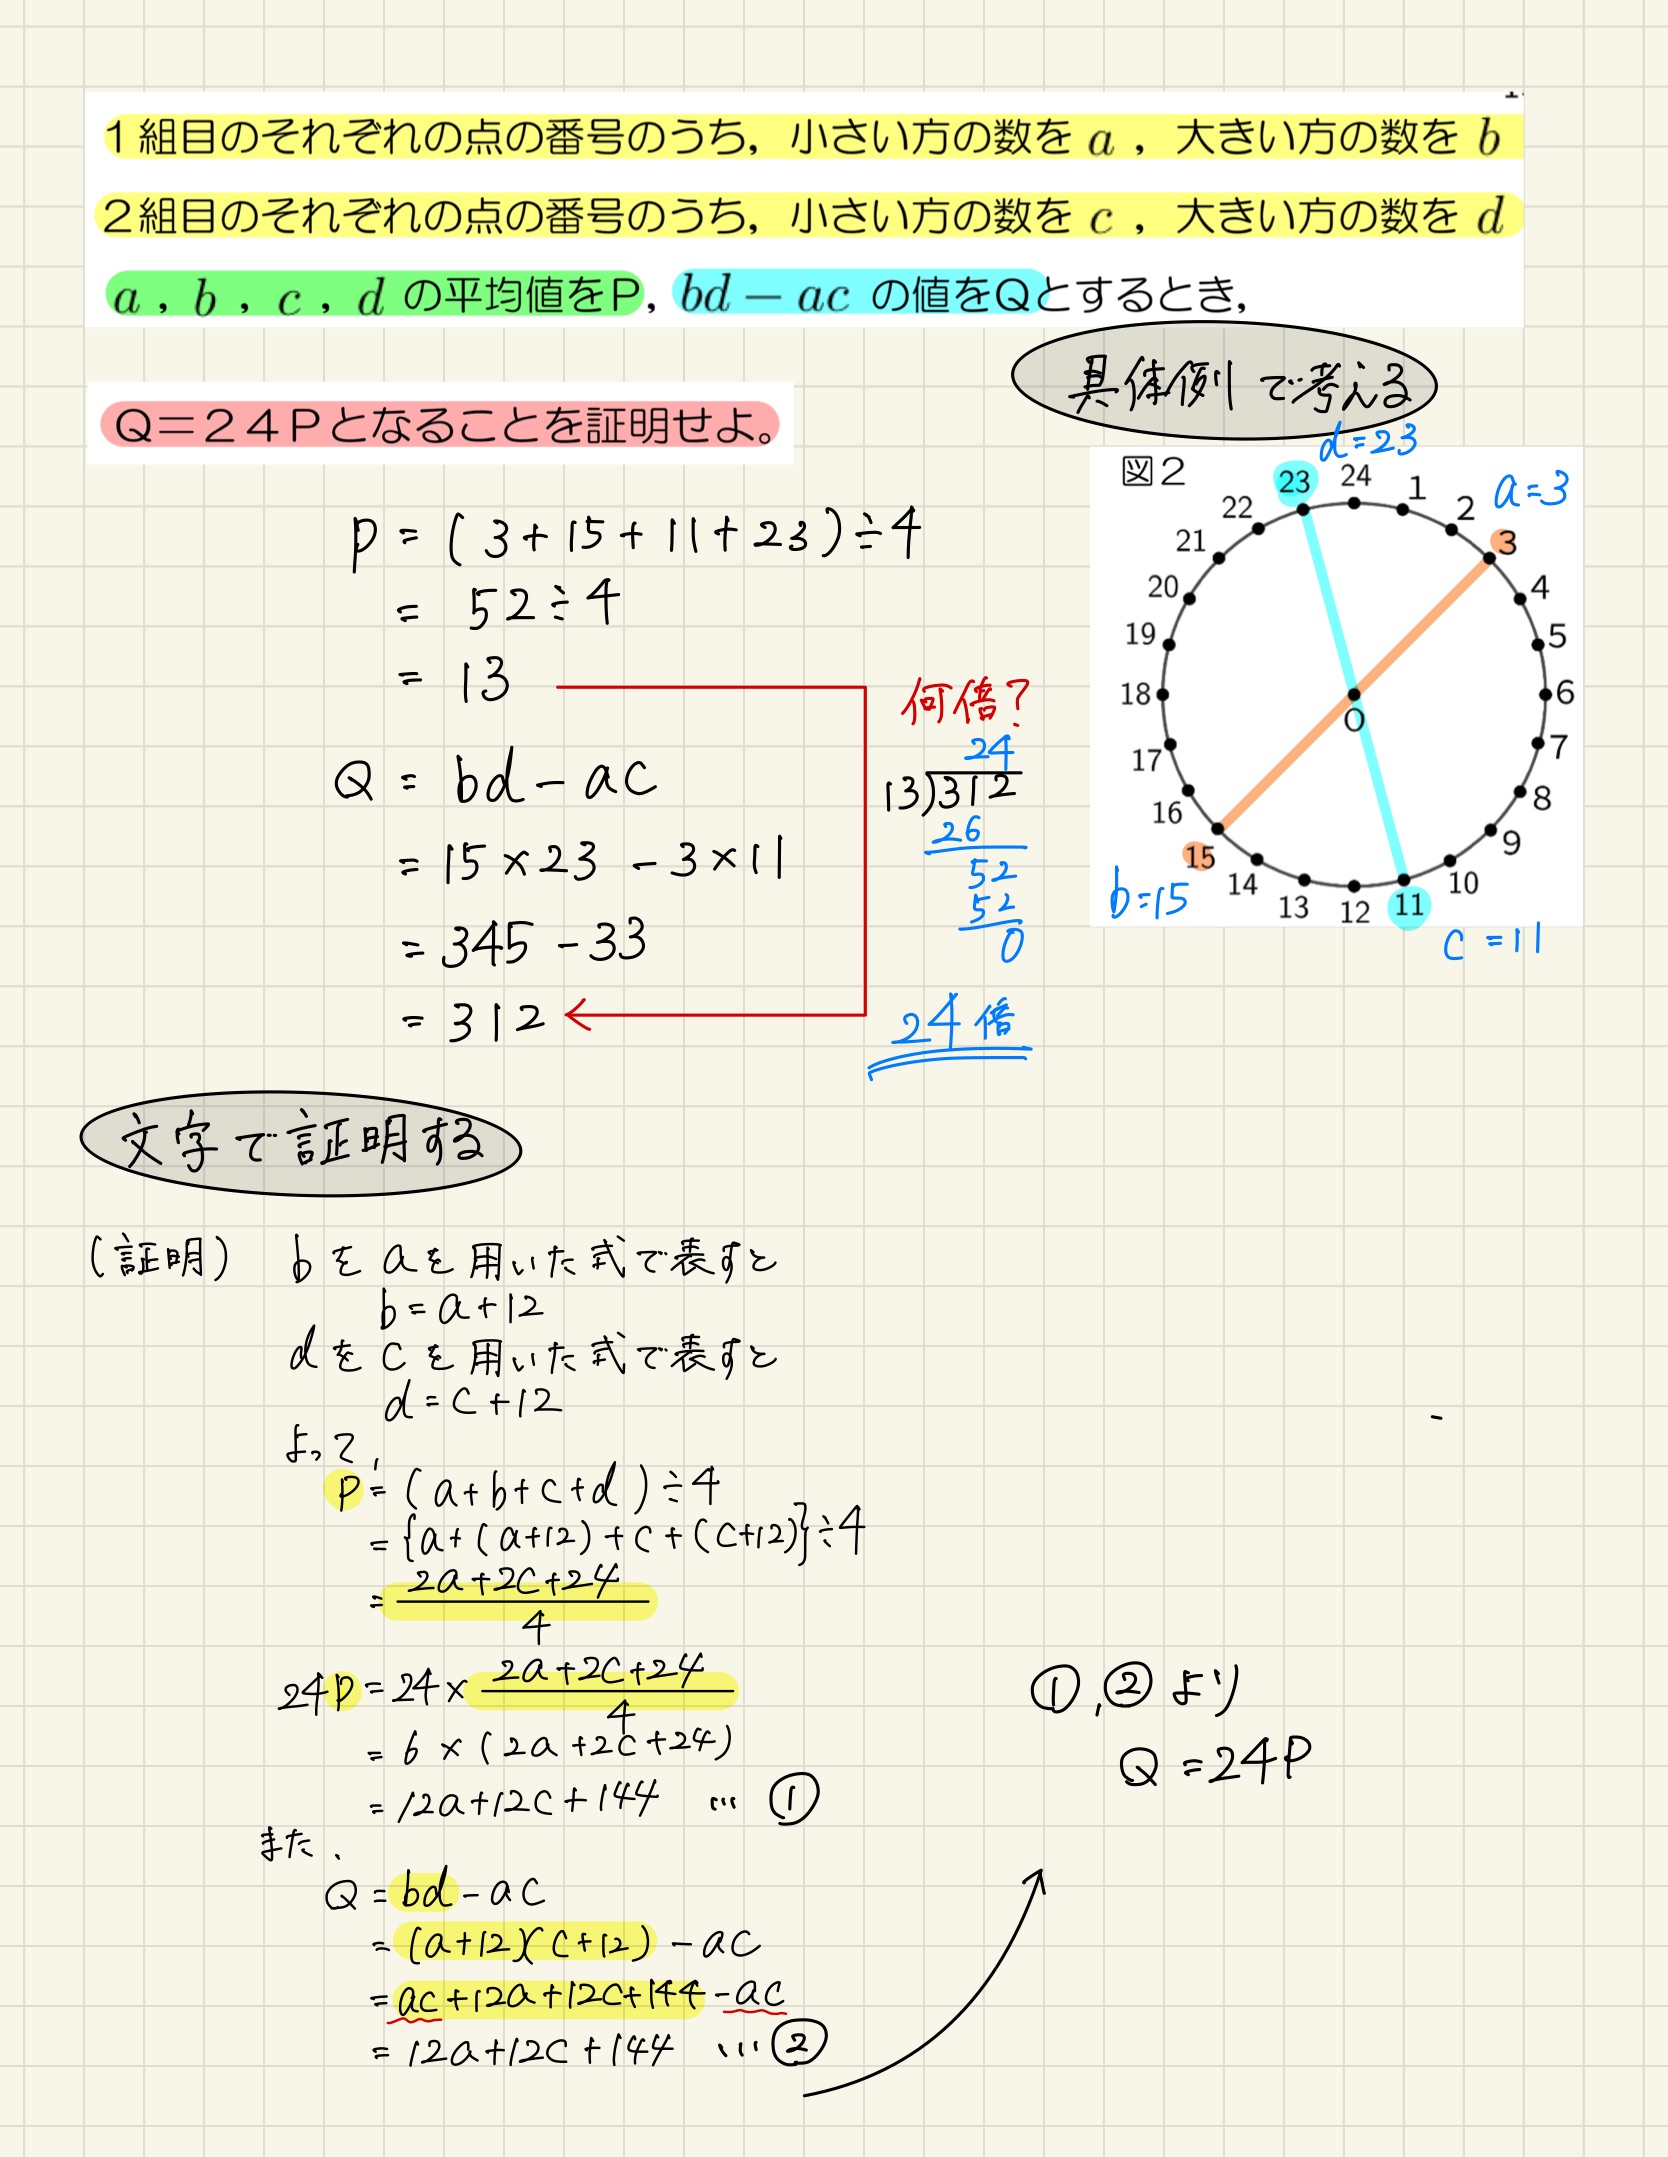 1組目のそれぞれの点の番号のうち，小さい方の数を a ，大きい方の数を b
2組目のそれぞれの点の番号のうち，小さい方の数を c ，大きい方の数を d
a ，b ，c ，d の平均値をP，bd － ac の値をQとするとき，
Q＝24Pとなることを証明せよ。
具体例で考える
P = (3+15+11+23)÷4
= 52÷4
= 13
Q = bd-ac
= 15×23 -3×11
= 345-33
= 312
何倍?
24
13)312
26
52
52
0
24倍
図2
d=23
a=3
b=15
c=11
24
1
2
3
4
5
6
7
8
9
10
11
12
13
14
15
16
17
18
19
20
21
22
23
O
文字で証明する
(証明) bをaを用いた式で表すと
b=a+12
dをcを用いた式で表すと
d=c+12
よって,
P=(a+b+c+d)÷4
={a+(a+12)+c+(c+12)}÷4
=\frac{2a+2c+24}{4}
24P=24×\frac{2a+2c+24}{4}
=6×(2a+2c+24)
=12a+12c+144 … ①
また、
Q=bd-ac
=(a+12)(c+12)-ac
=ac+12a+12c+144-ac
=12a+12c+144 …②
①,②より
Q=24P